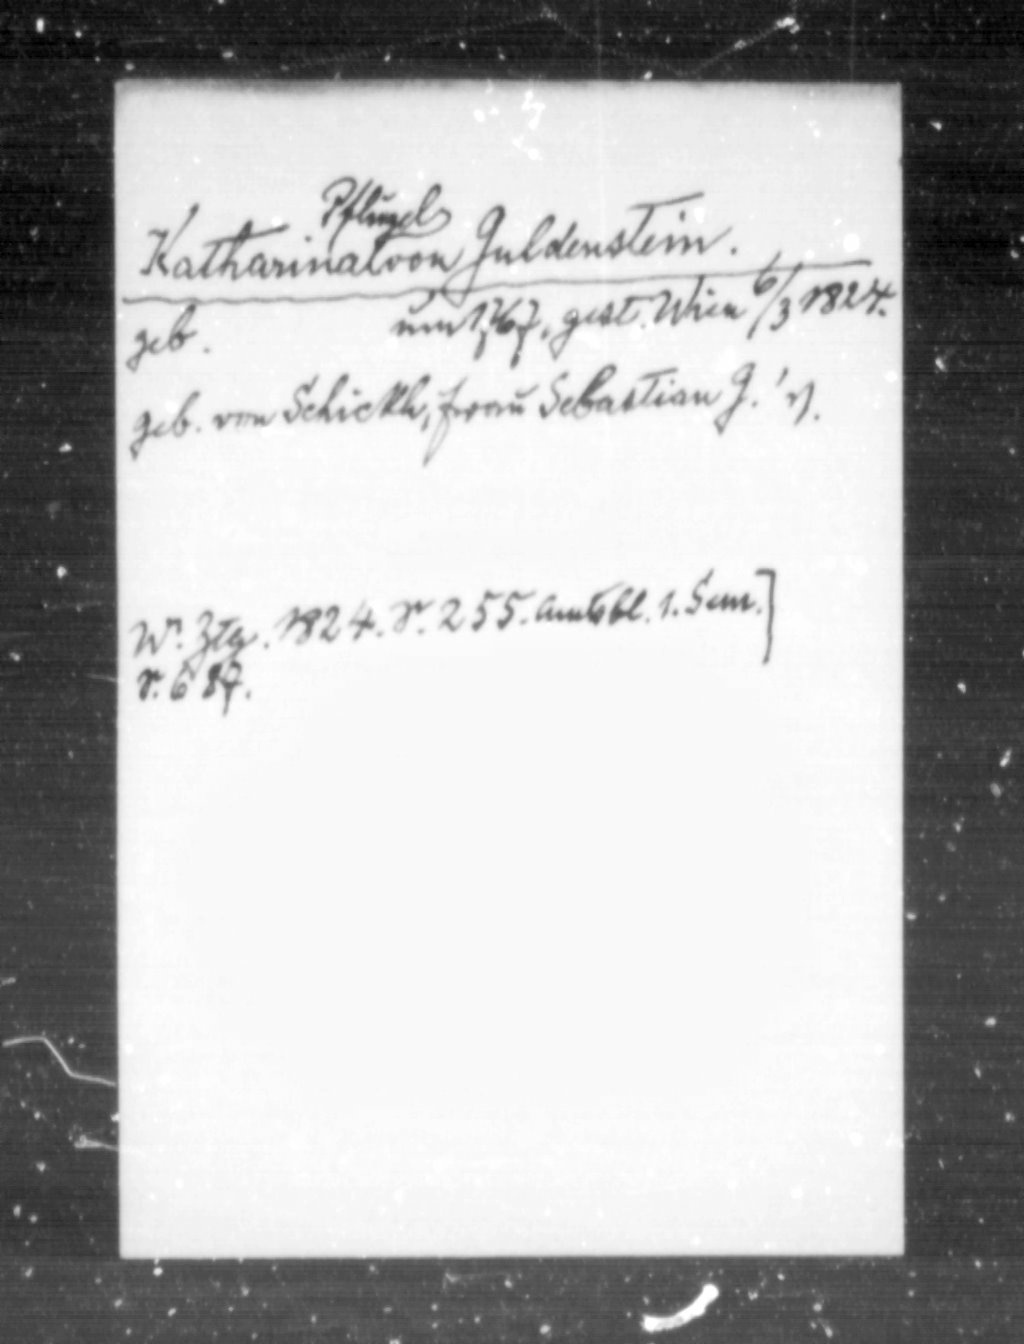 Pflügel
Katharina von Guldenstein.
geb. um 1767, gest. Wien 6/3 1824.
geb. von Schickh, Frau Sebastian G.'s.
Wr. Ztg. 1824. S. 255. Amtsbl. 1. Sem.]
S. 687.